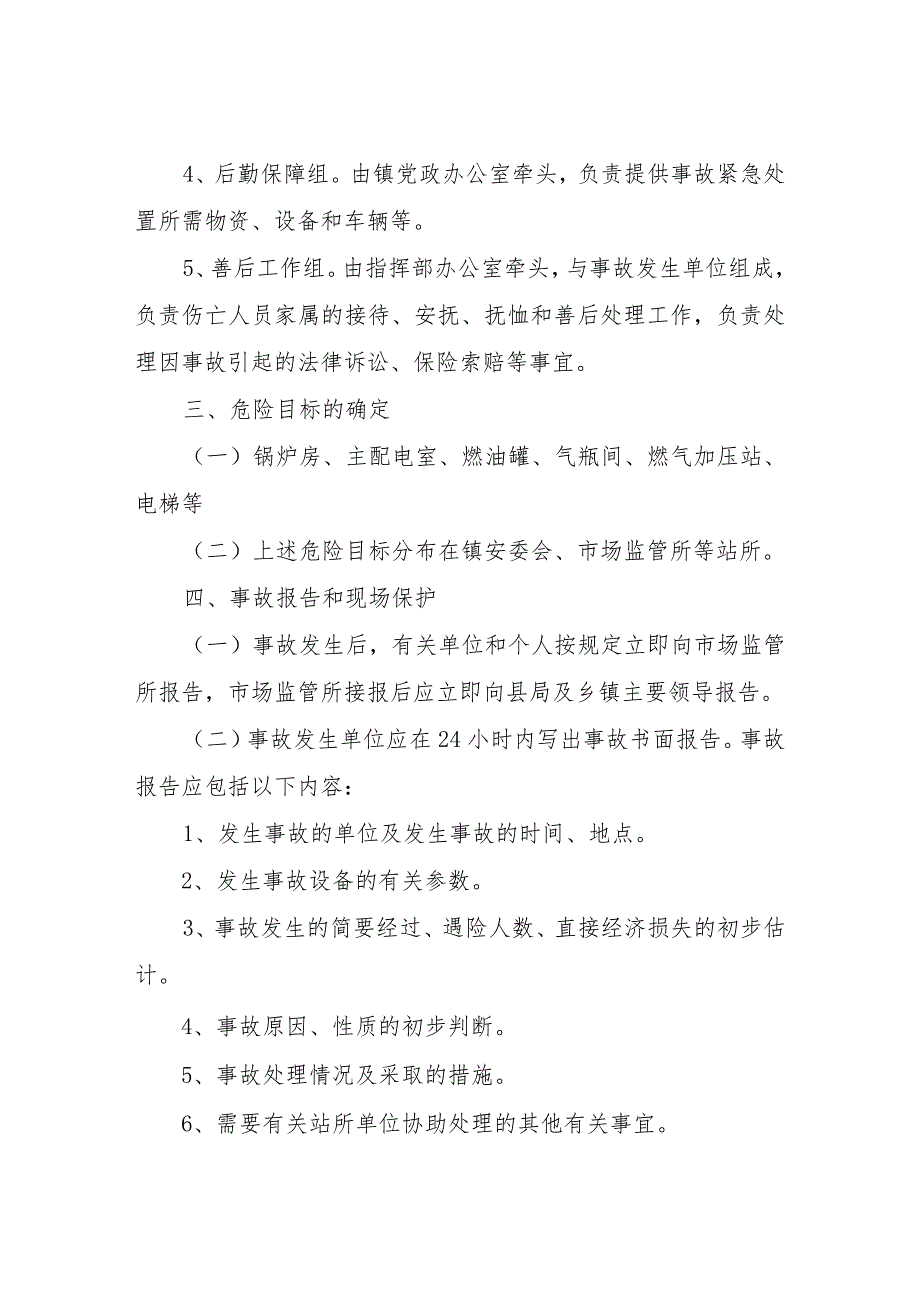 4、后勤保障组。由镇党政办公室牵头，负责提供事故紧急处
置所需物资、设备和车辆等。
5、善后工作组。由指挥部办公室牵头，与事故发生单位组成，
负责伤亡人员家属的接待、安抚、抚恤和善后处理工作，负责处
理因事故引起的法律诉讼、保险索赔等事宜。
三、危险目标的确定
（一）锅炉房、主配电室、燃油罐、气瓶间、燃气加压站、
电梯等
（二）上述危险目标分布在镇安委会、市场监管所等站所。
四、事故报告和现场保护
（一）事故发生后，有关单位和个人按规定立即向市场监管
所报告，市场监管所接报后应立即向县局及乡镇主要领导报告。
（二）事故发生单位应在24小时内写出事故书面报告。事故
报告应包括以下内容：
1、发生事故的单位及发生事故的时间、地点。
2、发生事故设备的有关参数。
3、事故发生的简要经过、遇险人数、直接经济损失的初步估
计。
4、事故原因、性质的初步判断。
5、事故处理情况及采取的措施。
6、需要有关站所单位协助处理的其他有关事宜。